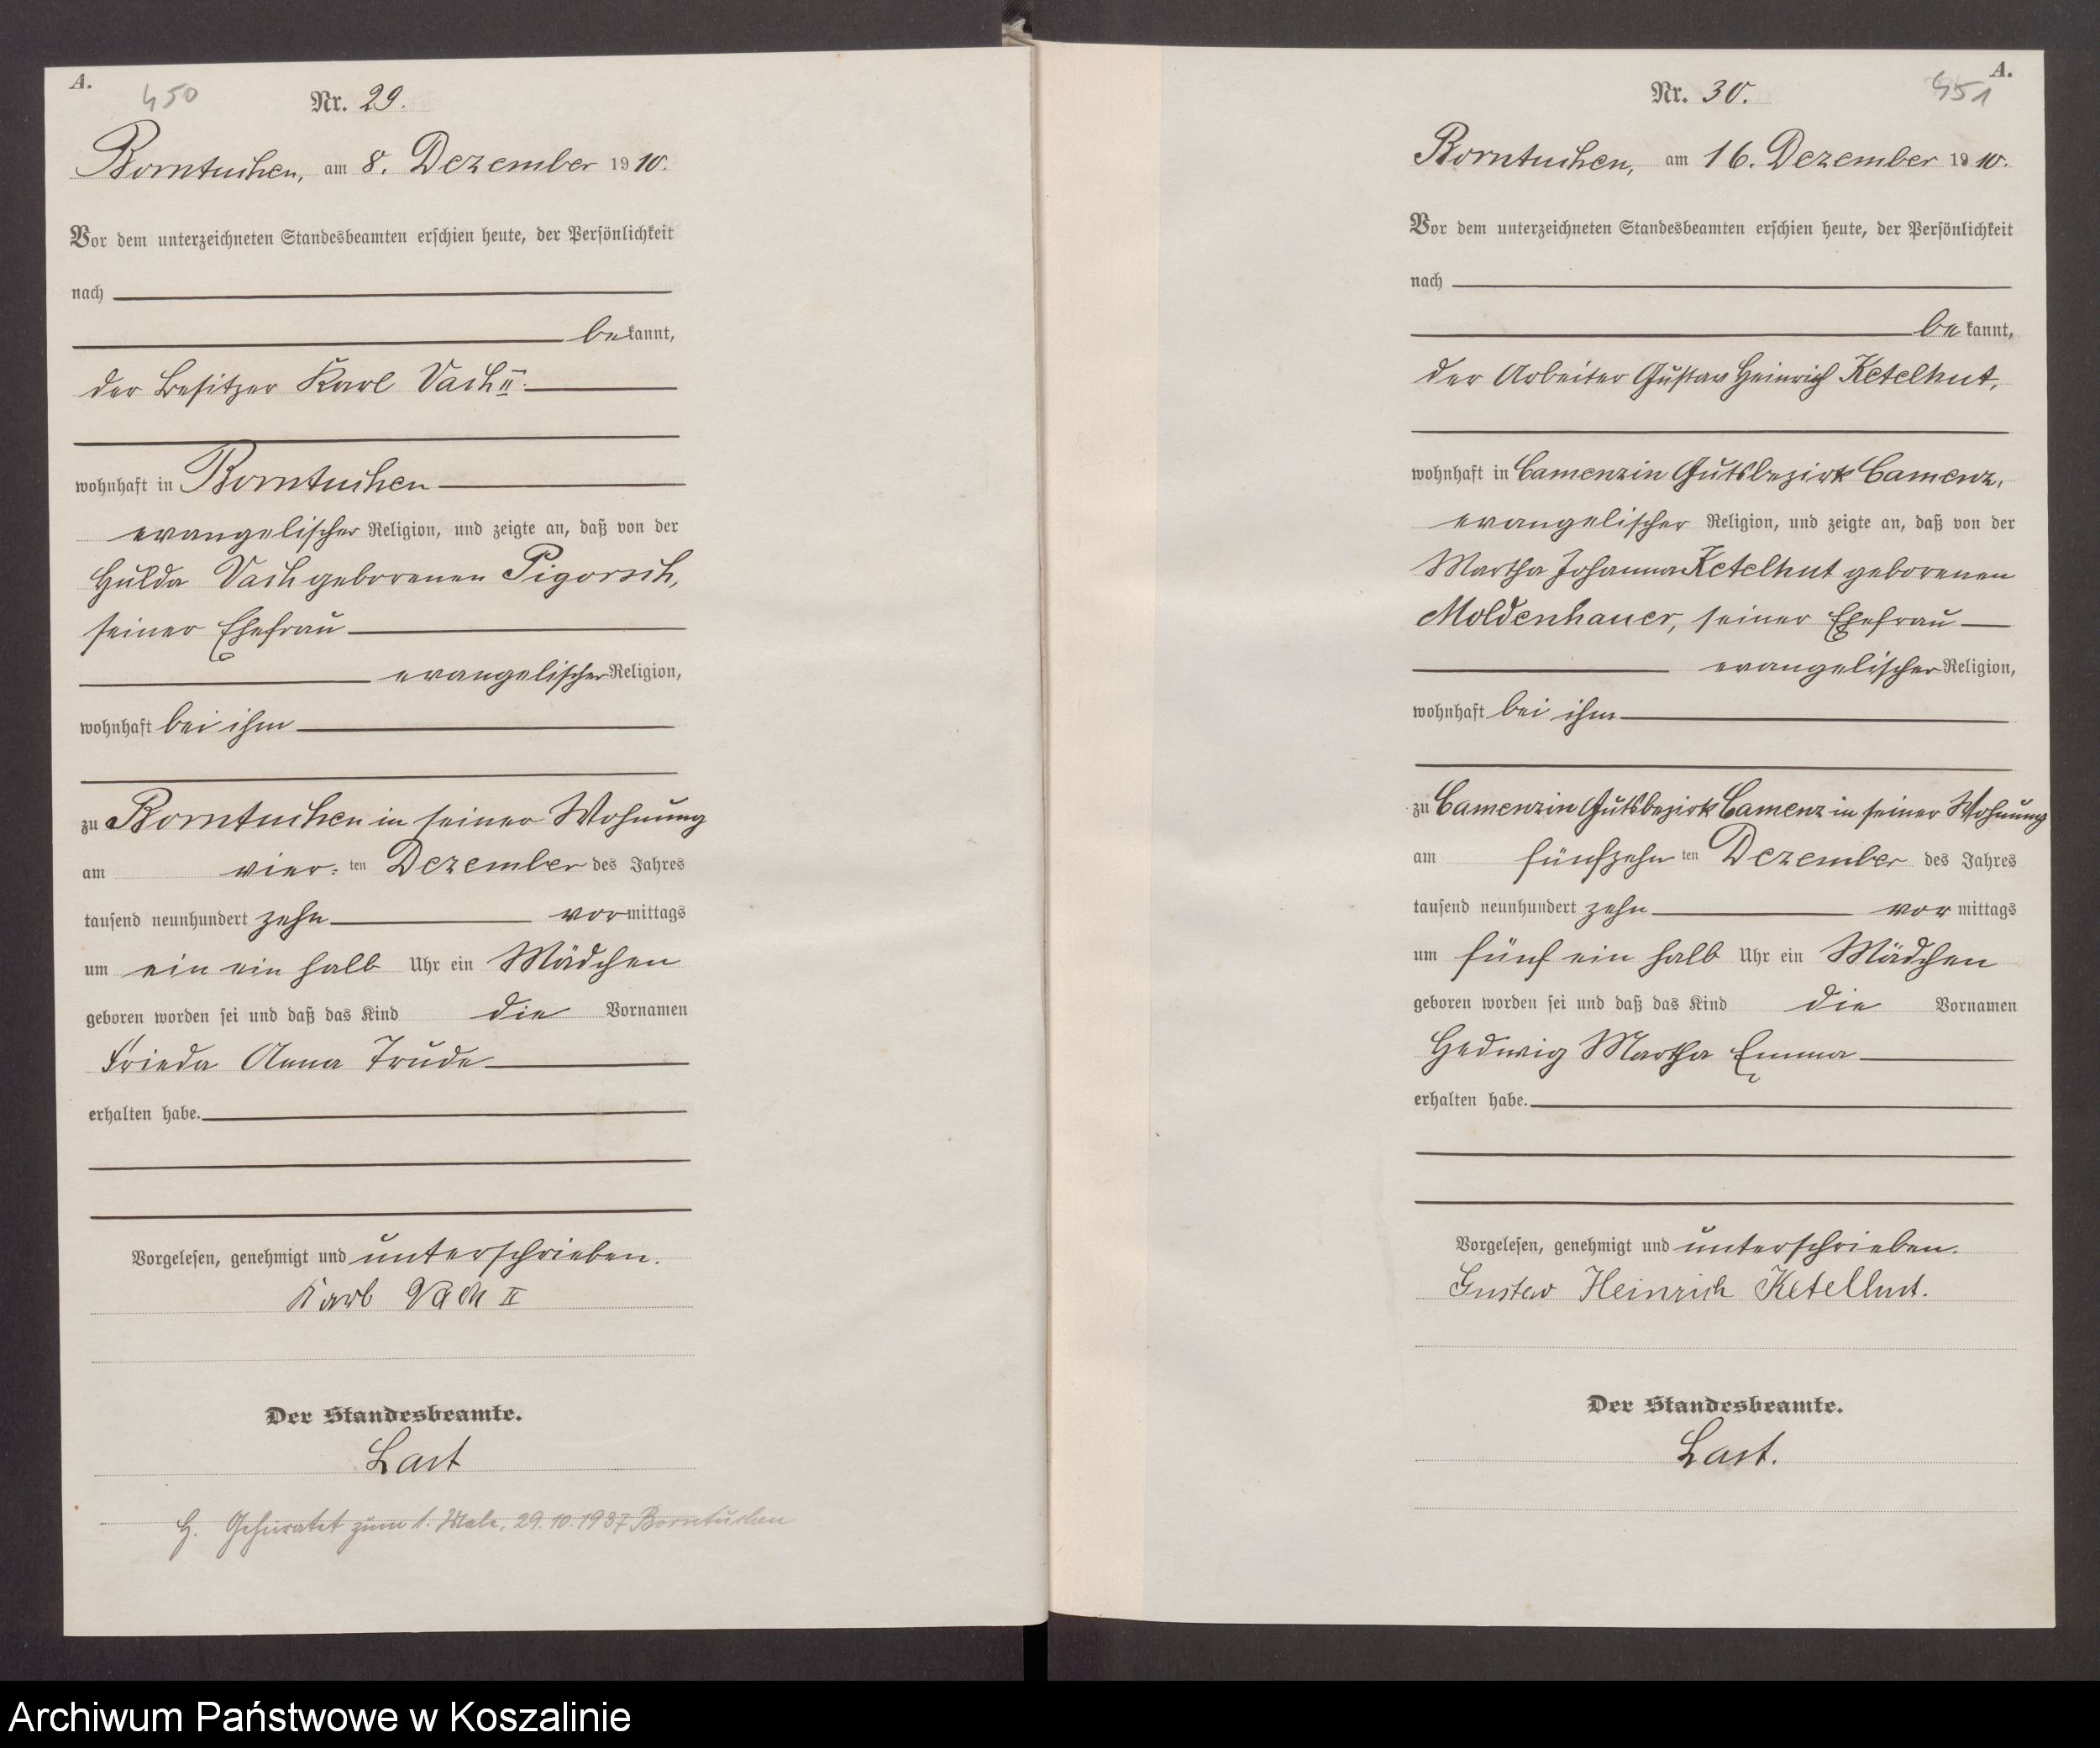 A.
450
Nr. 29.
Borntuchen, am 8. Dezember 1910.
Vor dem unterzeichneten Standesbeamten erschien heute, der Persönlichkeit
nach
bekannt,
der Besitzer Karl Vach II.
wohnhaft in Borntuchen
evangelischer Religion, und zeigte an, daß von der
Hulda Vach geborenen Pigorsch,
seiner Ehefrau
evangelischer Religion,
wohnhaft bei ihm
zu Borntuchen in seiner Wohnung
am vier-ten Dezember des Jahres
tausend neunhundert zehn vormittags
um ein ein halb Uhr ein Mädchen
geboren worden sei und daß das Kind die Vornamen
Frieda Anna Trude
erhalten habe.
Vorgelesen, genehmigt und unterschrieben.
Karl Vach II
Der Standesbeamte.
Last
H. Geheiratet zum 1. Male, 29.10.1937 Borntuchen
A.
451
Nr. 30.
Borntuchen, am 16. Dezember 1910.
Vor dem unterzeichneten Standesbeamten erschien heute, der Persönlichkeit
nach
bekannt,
der Arbeiter Gustav Heinrich Ketelhut,
wohnhaft in Camenzin Gutsbezirk Camenz,
evangelischer Religion, und zeigte an, daß von der
Martha Johanna Ketelhut geborenen
Moldenhauer, seiner Ehefrau
evangelischer Religion,
wohnhaft bei ihm
zu Camenzin Gutsbezirk Camenz in seiner Wohnung
am fünfzehnten Dezember des Jahres
tausend neunhundert zehn vormittags
um fünf ein halb Uhr ein Mädchen
geboren worden sei und daß das Kind die Vornamen
Hedwig Martha Emma
erhalten habe.
Vorgelesen, genehmigt und unterschrieben.
Gustav Heinrich Ketelhut.
Der Standesbeamte.
Last.
Archiwum Państwowe w Koszalinie